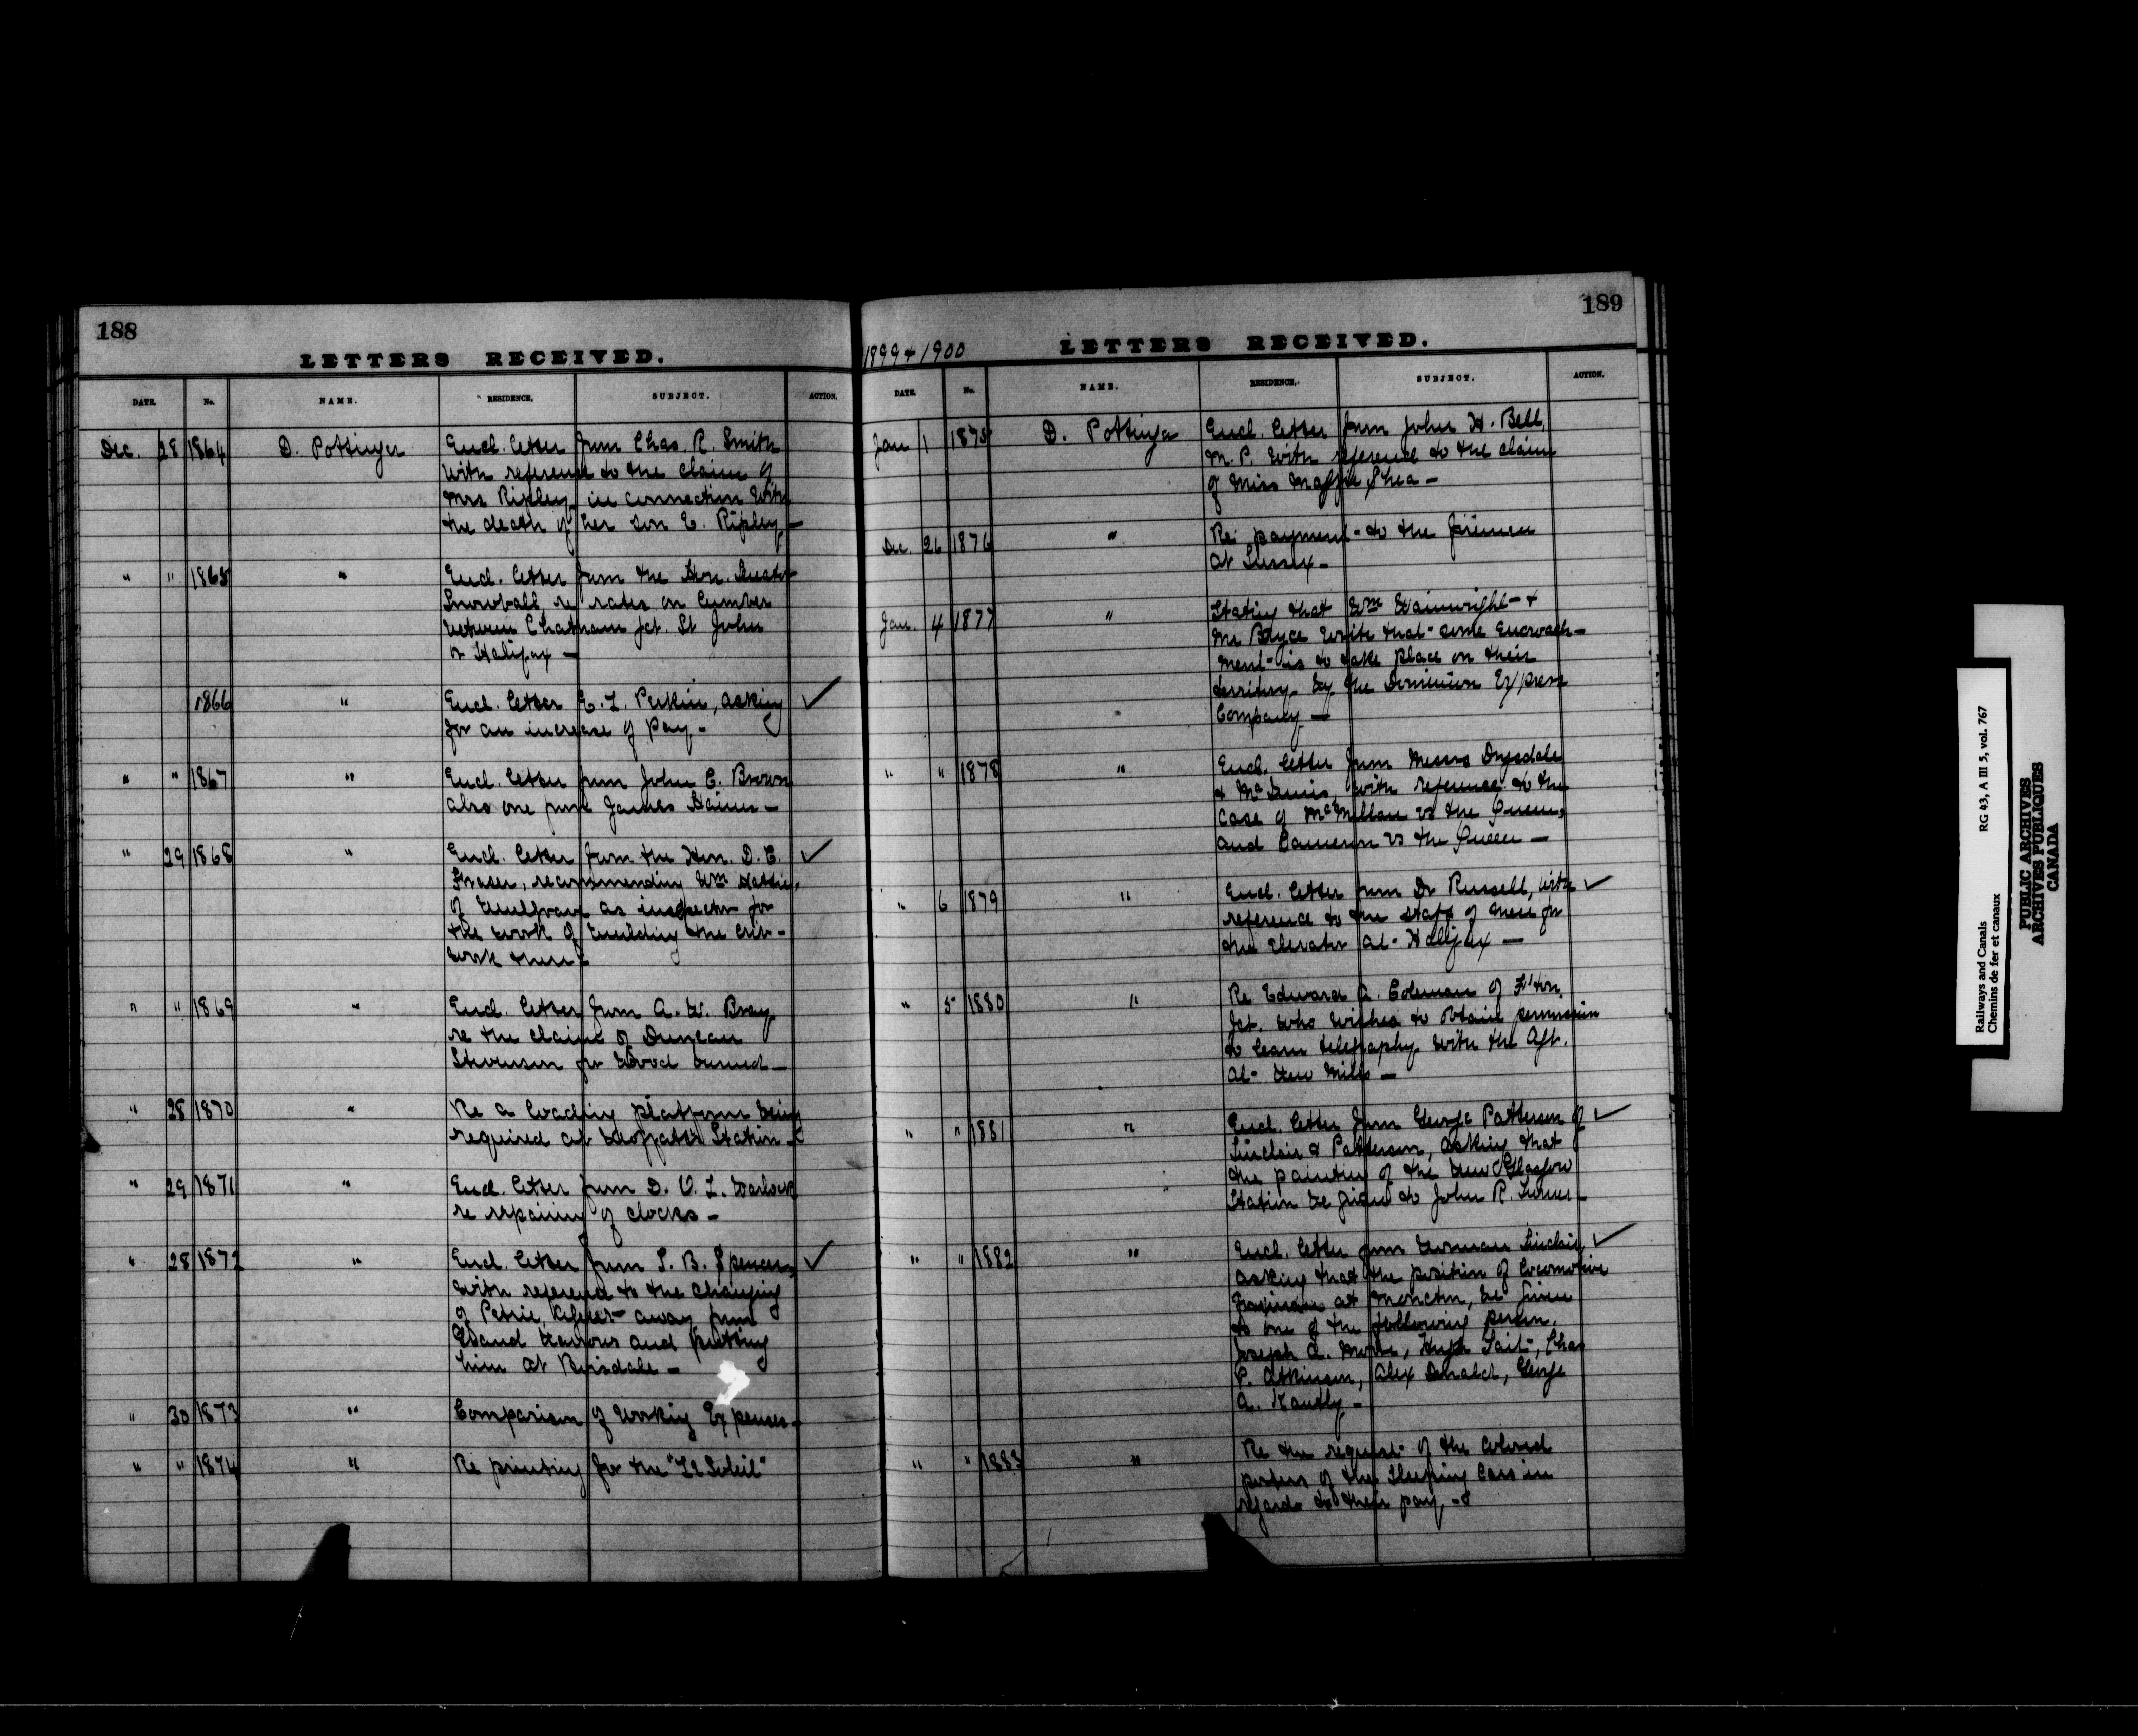 188
LETTERS RECEIVED.
DATE. No. NAME. RESIDENCE. SUBJECT. ACTION.
Dec. 28 1864 D. Pottinger Encl. letter from Chas. R. Smith
with reference to the claim of
Mrs Ripley, in connection with
the death of her son E. Ripley —
" " 1865 " Encl. letter from the Hon. Senator
Snowball, re rates on lumber
between Chatham Jct. St John
or Halifax —
1866 " Encl. letter E. L. Perkin, asking ✓
for an increase of pay —
" " 1867 " Encl. letter from John C. Brown
also one from James —
" 29 1868 " Encl. letter from the Hon. D. C. ✓
Fraser, recommending Wm
of Mulgrave as inspector for
the work of building the crib-
work there —
" " 1869 " Encl. letter from A. W. Bray
re the claim of Duncan
Stevenson for wood burned —
" 28 1870 " Re a loading platform being
required at Station —
" 29 1871 " Encl. letter from D. O. L. Warlock
re repairing of clocks —
" 28 1872 " Encl. letter from S. B. Spencer, ✓
with reference to the changing
of Petrie, Agent away from
Grand Narrows and putting
him at Boisdale —
" 30 1873 " Comparison of Working Expenses —
" " 1874 " Re printing for the "Le Soleil"
189
1899 & 1900
LETTERS RECEIVED.
DATE. No. NAME. RESIDENCE. SUBJECT. ACTION.
Jan 1 1875 D. Pottinger Encl. letter from John H. Bell,
M. P. with reference to the claim
of Miss Maggie Shea —
Dec. 26 1876 " Re payment to the firemen
at Sussex —
Jan. 4 1877 " Stating that Wm Wainwright &
Mr Bryce write that some encroach-
ment is to take place on their
territory by the Dominion Express
Company —
" " 1878 " Encl. letter from Messrs Drysdale
& McInnis, with reference to the
case of McMillan vs the Queen,
and Cameron vs the Queen —
" 6 1879 " Encl. letter from Dr Russell, with ✓
reference to the staff of men for
the Elevator at Halifax —
" 5 1880 " Re Edward A. Coleman of F'ton
Jct. who wishes to obtain permission
to learn telegraphy with the Agt.
at New Mills —
" " 1881 " Encl. letter from George Patterson of ✓
Sinclair & Patterson, asking that
the painting of the New Glasgow
Station be given to John R. Turner —
" " 1882 " Encl. letter from Norman Sinclair, ✓
asking that the position of Locomotive
Foreman at Moncton, be given
to one of the following person.
Joseph A. Hugh Tait, Chas
P. Atkinson, Alex Donald, George
A. —
" " 1883 " Re the request of the colored
porters of the Sleeping Cars in
regards to their pay, —
Railways and Canals RG 43, A III 5, vol. 767
Chemins de fer et canaux
PUBLIC ARCHIVES
ARCHIVES PUBLIQUES
CANADA